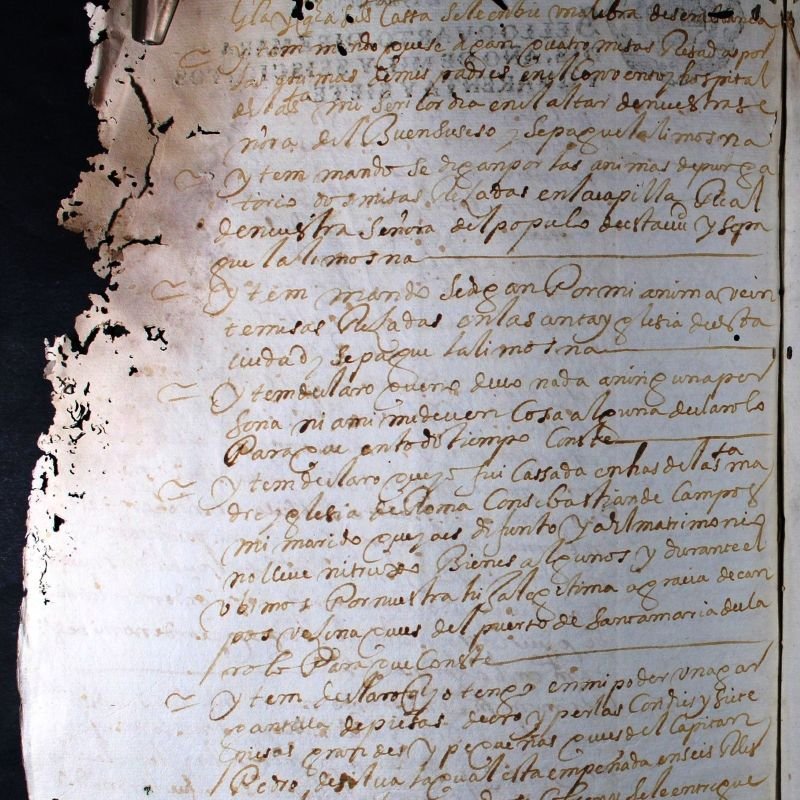 y tem mando que se digan quatro misas Resadas por
las animas de mis padres en el Convento y hospital
de la sta misericordia en el altar de nuestra se
ñora del Buen suseso y se pague la limosna
y tem mando se digan por las animas de purga
torio dos misas Resadas en la capilla Real
de nuestra Señora del populo de esta ciud y se pa
gue la limosna
y tem mando se digan Por mi anima vein
te misas Resadas en la santa yglesia de esta
ciudad y se pague la limosna
y tem declaro que no devo nada a ninguna per
sona ni a mi me deven Cosa alguna declarolo
Para que en todo tiempo Conste
y tem declaro que yo fui Cassada en has de la sta ma
dre yglesia de Roma Con sebastian de Campos
mi marido que ya es difunto y al matrimonio
no lleve ni truxo Bienes algunos y durante el
ubimos Por nuestra hija legitima a gracia de can
pos vesina que es del puerto de Santa maria decla
rolo Para que Conste
y tem declaro q yo tengo en mi poder una gar
gantilla de piesas de oro y perlas Con dies y siete
piesas grandes y pequeñas que es del Capitan
Pedro de silva la qual esta empeñada en seis
se le entregue